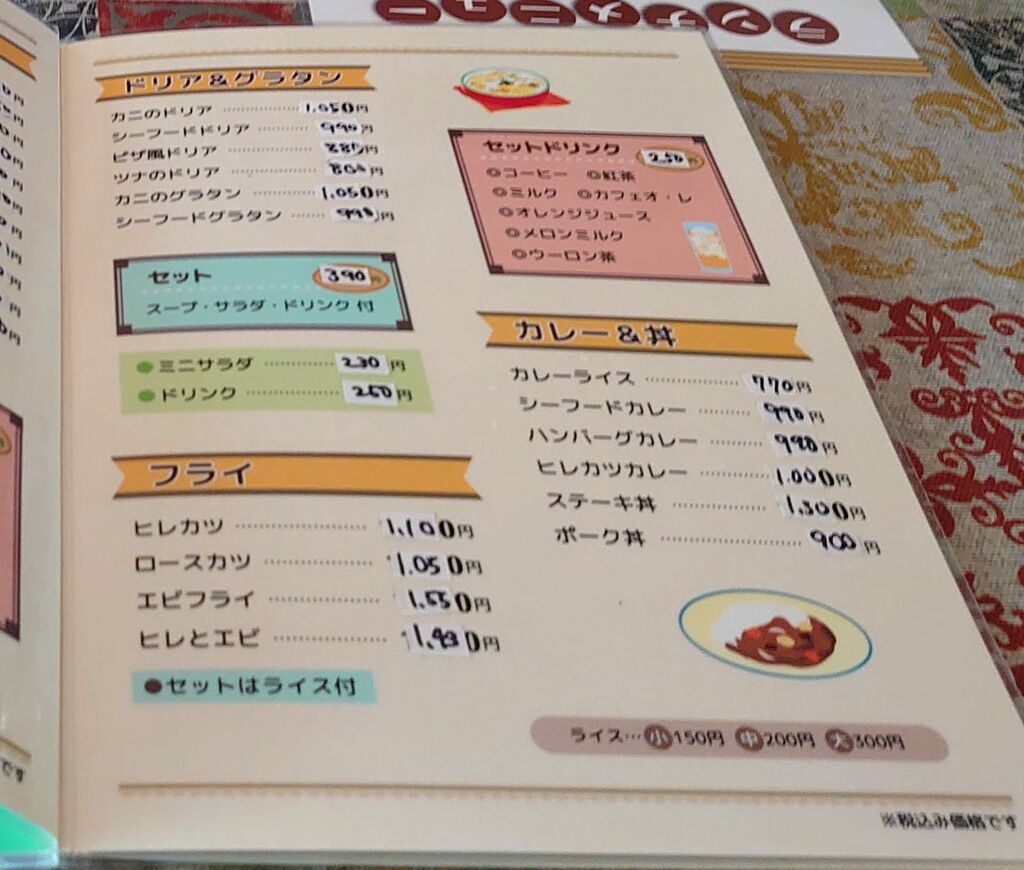 ランチメニュー
ドリア&グラタン
カニのドリア 1,050円
シーフードドリア 990円
ピザ風ドリア 円
ツナのドリア 円
カニのグラタン 1,050円
シーフードグラタン 円
セット 390円
スープ・サラダ・ドリンク付
●ミニサラダ 230円
●ドリンク 円
フライ
ヒレカツ 1,100円
ロースカツ 1,050円
エビフライ 円
ヒレとエビ 円
●セットはライス付
セットドリンク 250円
◎コーヒー ◎紅茶
◎ミルク ◎カフェオ・レ
◎オレンジジュース
◎メロンミルク
◎ウーロン茶
カレー&丼
カレーライス 770円
シーフードカレー 990円
ハンバーグカレー 円
ヒレカツカレー 1,000円
ステーキ丼 1,300円
ポーク丼 900円
ライス…小150円 中200円 大300円
※税込み価格です